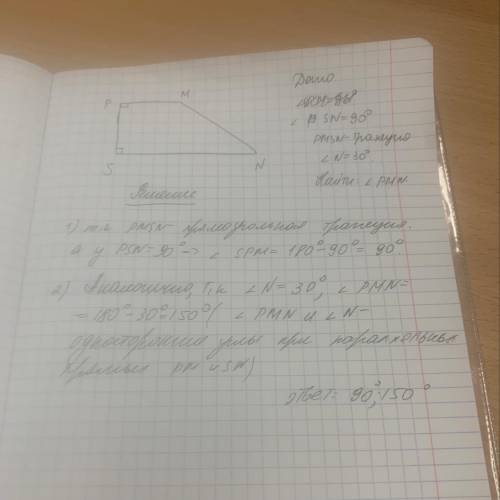 P
M
S
N
Дано
∠ SN=90°
PMSN-Трапеция
∠N=30°
Найти: ∠PMN
Решение
1) т.к PMSN- прямоугольная трапеция.
А у PSN=90°-> ∠ SPM= 180°-90°= 90°.
2) Аналогично, т.к ∠N=30°, ∠PMN=
=180°-30°=150°( ∠PMN и ∠N-
односторонние углы при параллельных
прямых PM и SN)
ответ: 90°;150°